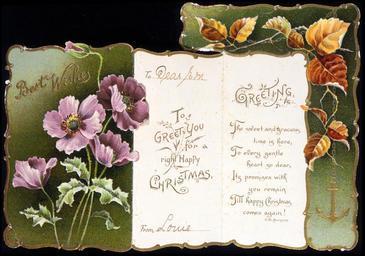 Best Wishes
To Dear
To
Greet You
for a
right Happy
Christmas.
From Louie
Greeting.
The sweet and gracious
time is here,
To every gentle
heart so dear,
Its promises with
you remain
Till happy Christmas
comes again!